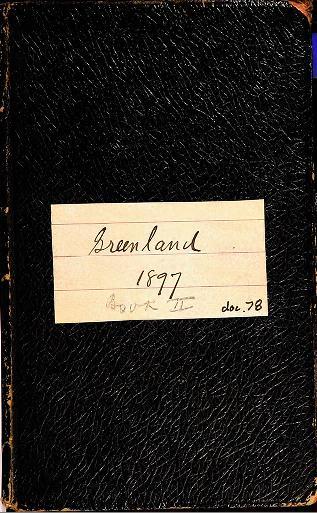 Greenland
1897
Book II
doc. 78